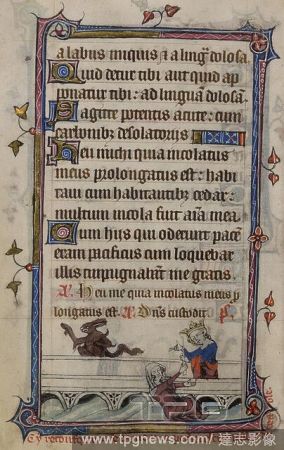 a labiis iniquis ⁊ a lingᷓ dolosa.
Quid detur tibi aut quid ap
ponatur tibi: ad linguā dolosā.
Sagitte potentis acute: cum
carbonibꝫ desolatoriis
Heu michi quia incolatus
meus prolongatus est: habi
taui cum habitantibꝫ cedar:
multum incola fuit aīa mea
Cum hiis qui oderunt pacē
eram pacificus cum loquebar
illis inpugnabāt me gratis.
A. Heu me quia incolatus meus p
longatus est. A. Dn̄s custodit
TPG
www.tpgnews.com/達志影像